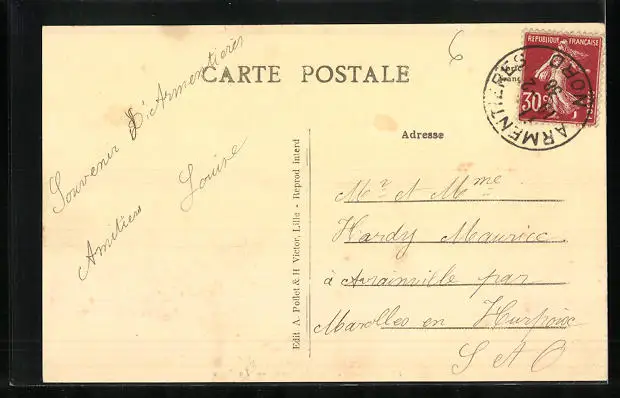 CARTE POSTALE
Souvenir D'Armentières
Amitiés
Louise
6
REPUBLIQUE FRANÇAISE
30c
ARMENTIERES
NORD
Adresse
Mr et Mme
Hardy Maurice
à Avrainville par
Marolles en Hurpoix
S et O
Edit A. Pollet & H Victor, Lille - Reprod interd